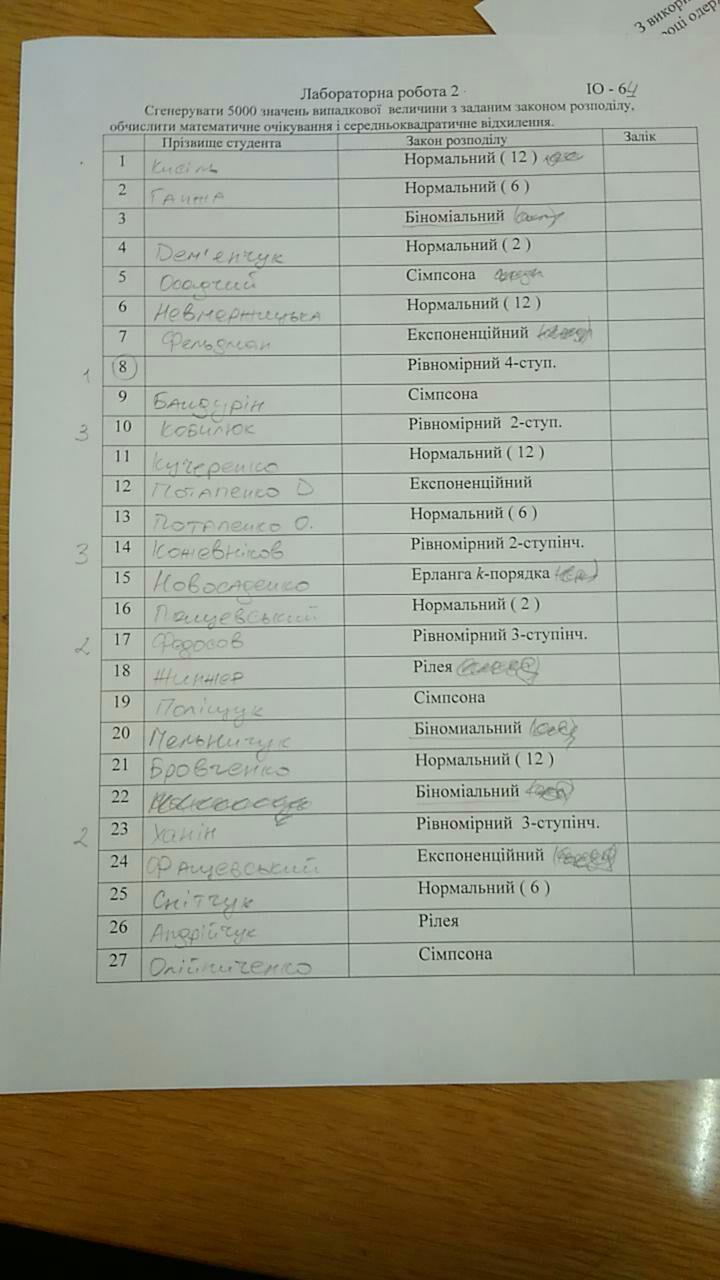 З викори
році одер
Лабораторна робота 2 ІО - 64
Сгенерувати 5000 значень випадкової величини з заданим законом розподілу,
обчислити математичне очікування і середньоквадратичне відхилення.
Прізвище студента Закон розподілу Залік
1 Кисіль Нормальний ( 12 )
2 Ганжа Нормальний ( 6 )
3 Біноміальний
4 Дем'енчук Нормальний ( 2 )
5 Осадчий Сімпсона
6 Невмержицька Нормальний ( 12 )
7 Фельдман Експоненційний
1 8 Рівномірний 4-ступ.
9 Бандурін Сімпсона
3 10 Кобилюк Рівномірний 2-ступ.
11 Кучеренко Нормальний ( 12 )
12 Потапенко D Експоненційний
13 Потапенко О. Нормальний ( 6 )
3 14 Кожевніков Рівномірний 2-ступінч.
15 Новосаденко Ерланга k-порядка
16 Нормальний ( 2 )
2 17 Федосов Рівномірний 3-ступінч.
18 Рілея
19 Поліщук Сімпсона
20 Мельничук Біномиальний
21 Бровченко Нормальний ( 12 )
22 Біноміальний
2 23 Ханін Рівномірний 3-ступінч.
24 Фащевський Експоненційний
25 Снітчук Нормальний ( 6 )
26 Андрійчук Рілея
27 Олійниченко Сімпсона